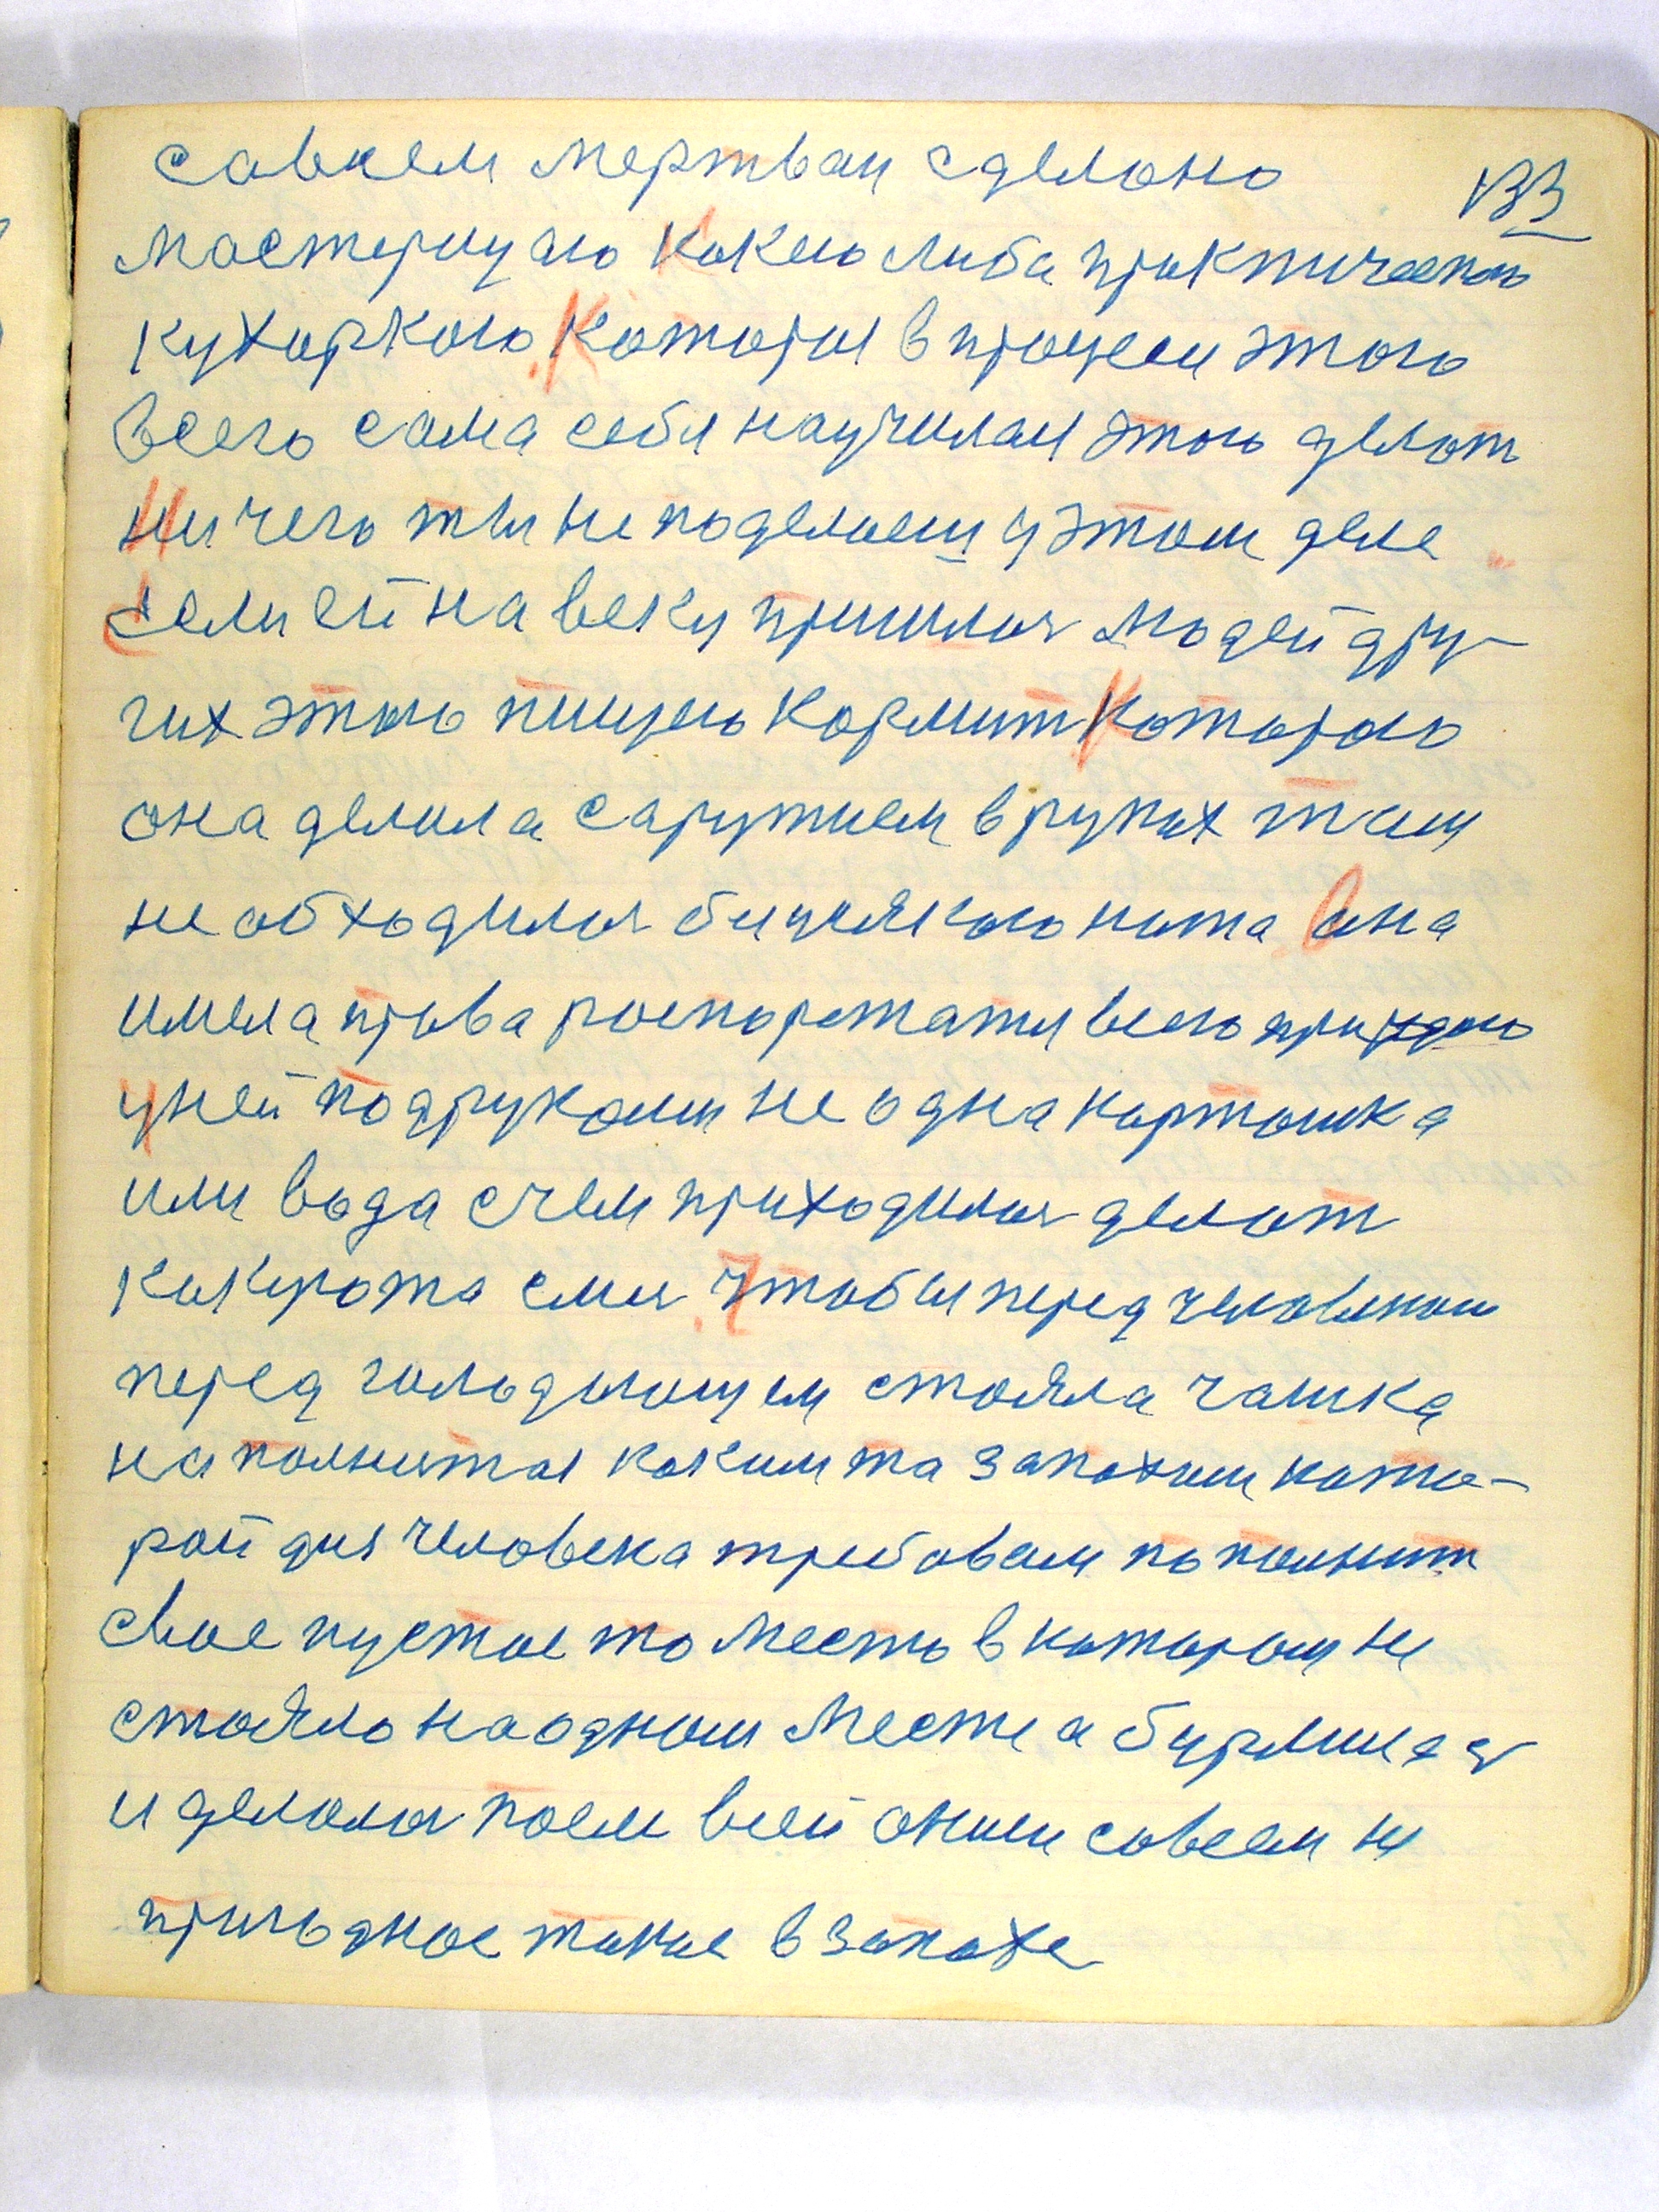 133
совсем мертвом сделоно
мостерицою какею либа практическою
кухаркою. Которая в процеси этого
всего сама себя научилася этого делот
Ничего ты не поделаеш у этом деле
Если ей на веку пришлося людей дру-
гих этою пищею кормит Которою
она делила с аружием в руках там
не обходилося без
она
имела права роспоряжатся всего природою
у ней под руками не одна картошка
или вода с чем приходилося делот
какуюта смесь. Чтобы перед человеком
перед голодующем стояла чашка
наполнитая какимта запахам кото-
рой для человека требовал пополнит
свое пустое то место в котором не
стояло на одном месте а
и делолося после всей оными совсем не
пригодное такое в запахе